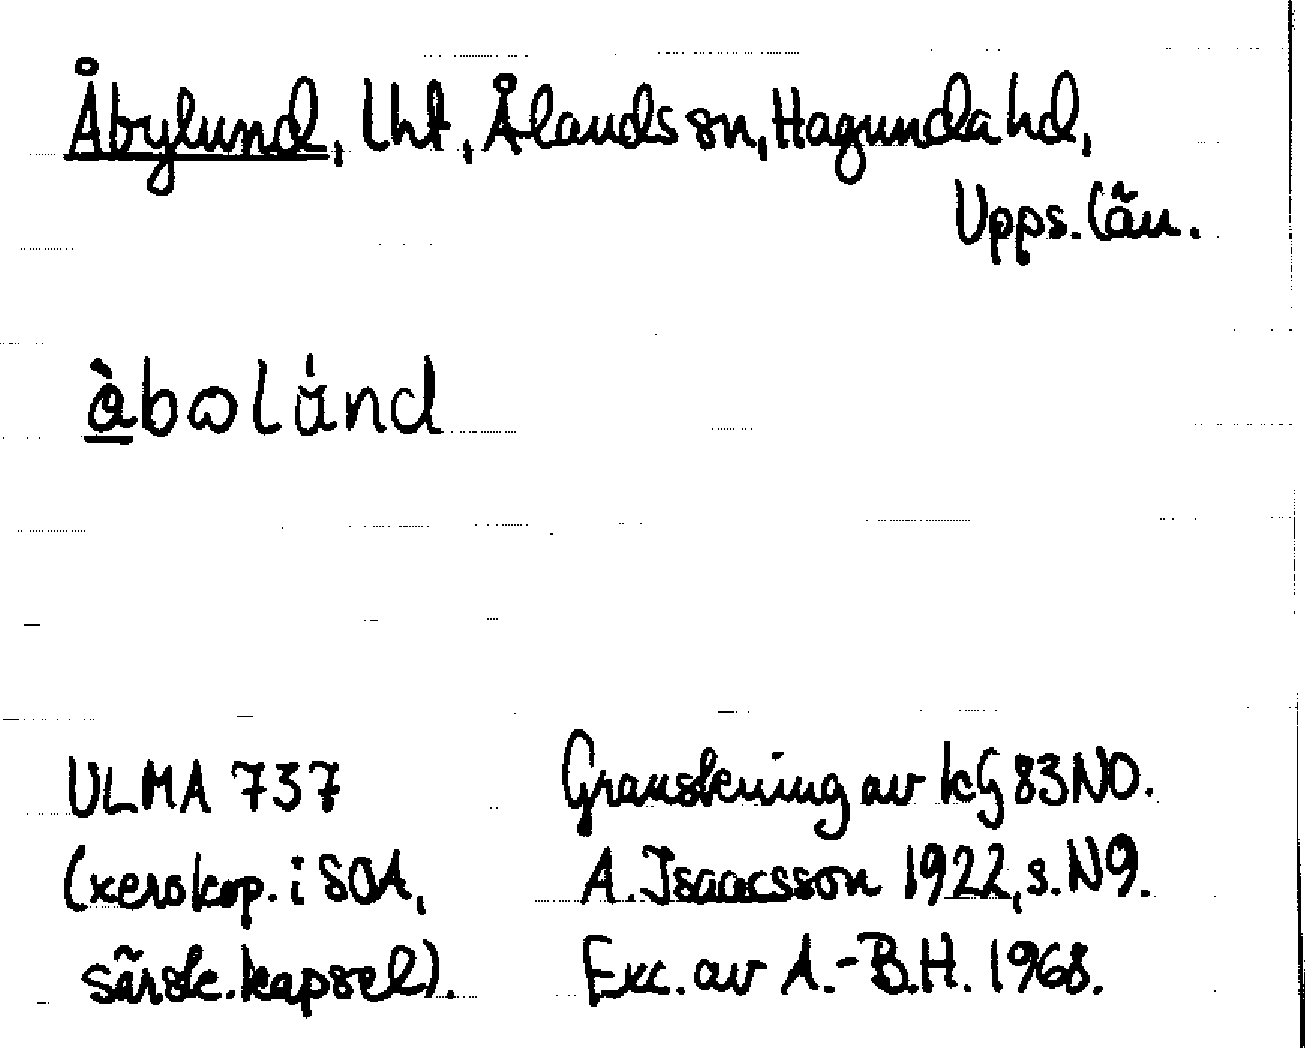 Åbylund, lht, Ålands sn, Hagunda hd,
Upps. län.
ULMA 737
(xerokop. i SOA,
särsk. kapsel).
Granskning av kG 83 NO.
A. Isaacsson 1922, s. N9.
Exc. av A.-B.H. 1968.